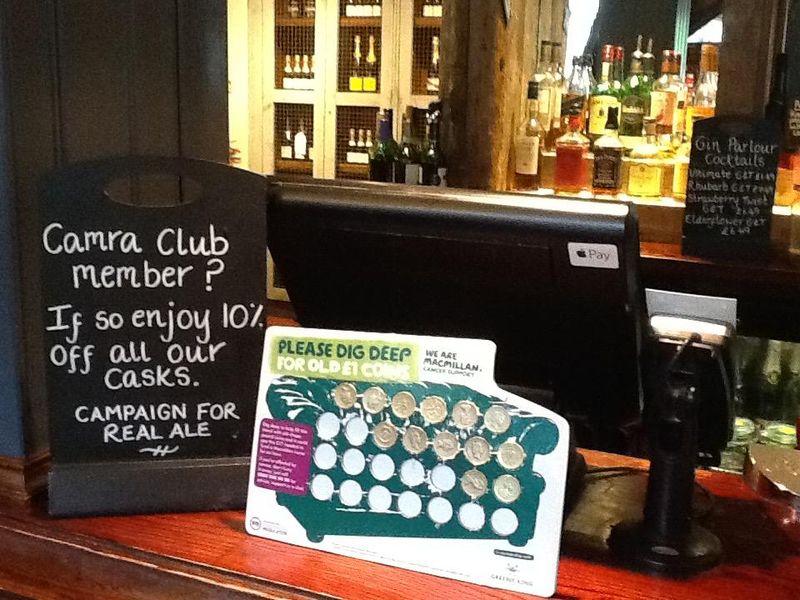 Camra Club
member ?
If so enjoy 10%
off all our
casks.
CAMPAIGN FOR
REAL ALE
PLEASE DIG DEEP
FOR OLD £1 COINS
WE ARE
MACMILLAN.
CANCER SUPPORT
GREENE KING
Pay
Gin Parlour
Cocktails
Ultimate G&T
Rhubarb G&T
Strawberry Twist
G&T £6.49
Elderflower G&T
£6.49